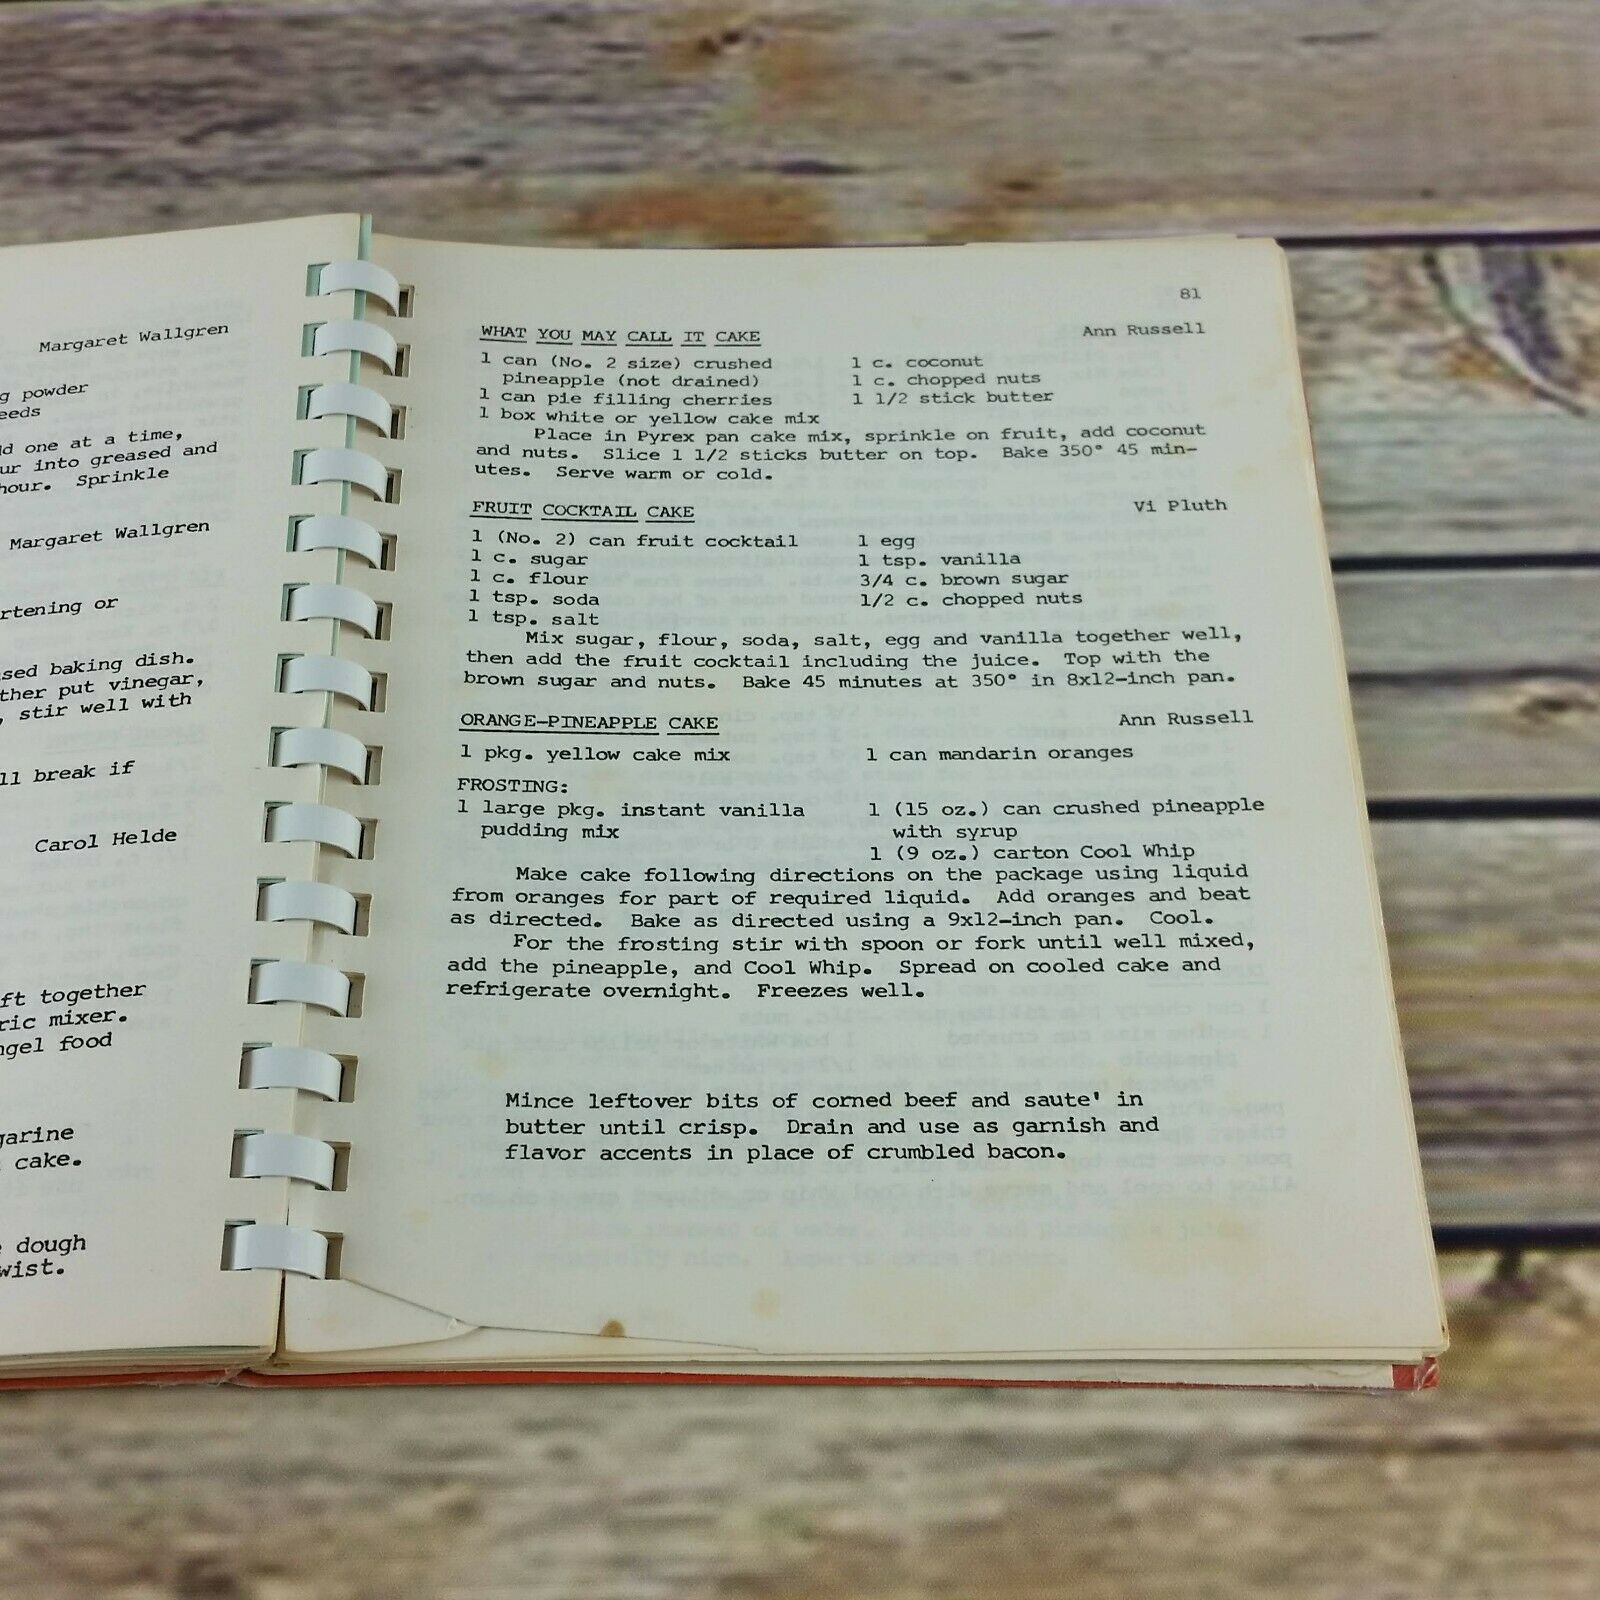 Margaret Wallgren
g powder
eeds
ld one at a time,
ur into greased and
hour. Sprinkle
Margaret Wallgren
rtening or
sed baking dish.
ther put vinegar,
, stir well with
ll break if
Carol Helde
ft together
ric mixer.
ngel food
garine
cake.
dough
wist.
81
WHAT YOU MAY CALL IT CAKE Ann Russell
1 can (No. 2 size) crushed 1 c. coconut
pineapple (not drained) 1 c. chopped nuts
1 can pie filling cherries 1 1/2 stick butter
1 box white or yellow cake mix
Place in Pyrex pan cake mix, sprinkle on fruit, add coconut
and nuts. Slice 1 1/2 sticks butter on top. Bake 350° 45 min-
utes. Serve warm or cold.
FRUIT COCKTAIL CAKE Vi Pluth
1 (No. 2) can fruit cocktail 1 egg
1 c. sugar 1 tsp. vanilla
1 c. flour 3/4 c. brown sugar
1 tsp. soda 1/2 c. chopped nuts
1 tsp. salt
Mix sugar, flour, soda, salt, egg and vanilla together well,
then add the fruit cocktail including the juice. Top with the
brown sugar and nuts. Bake 45 minutes at 350° in 8x12-inch pan.
ORANGE-PINEAPPLE CAKE Ann Russell
1 pkg. yellow cake mix 1 can mandarin oranges
FROSTING:
1 large pkg. instant vanilla 1 (15 oz.) can crushed pineapple
pudding mix with syrup
1 (9 oz.) carton Cool Whip
Make cake following directions on the package using liquid
from oranges for part of required liquid. Add oranges and beat
as directed. Bake as directed using a 9x12-inch pan. Cool.
For the frosting stir with spoon or fork until well mixed,
add the pineapple, and Cool Whip. Spread on cooled cake and
refrigerate overnight. Freezes well.
Mince leftover bits of corned beef and saute' in
butter until crisp. Drain and use as garnish and
flavor accents in place of crumbled bacon.